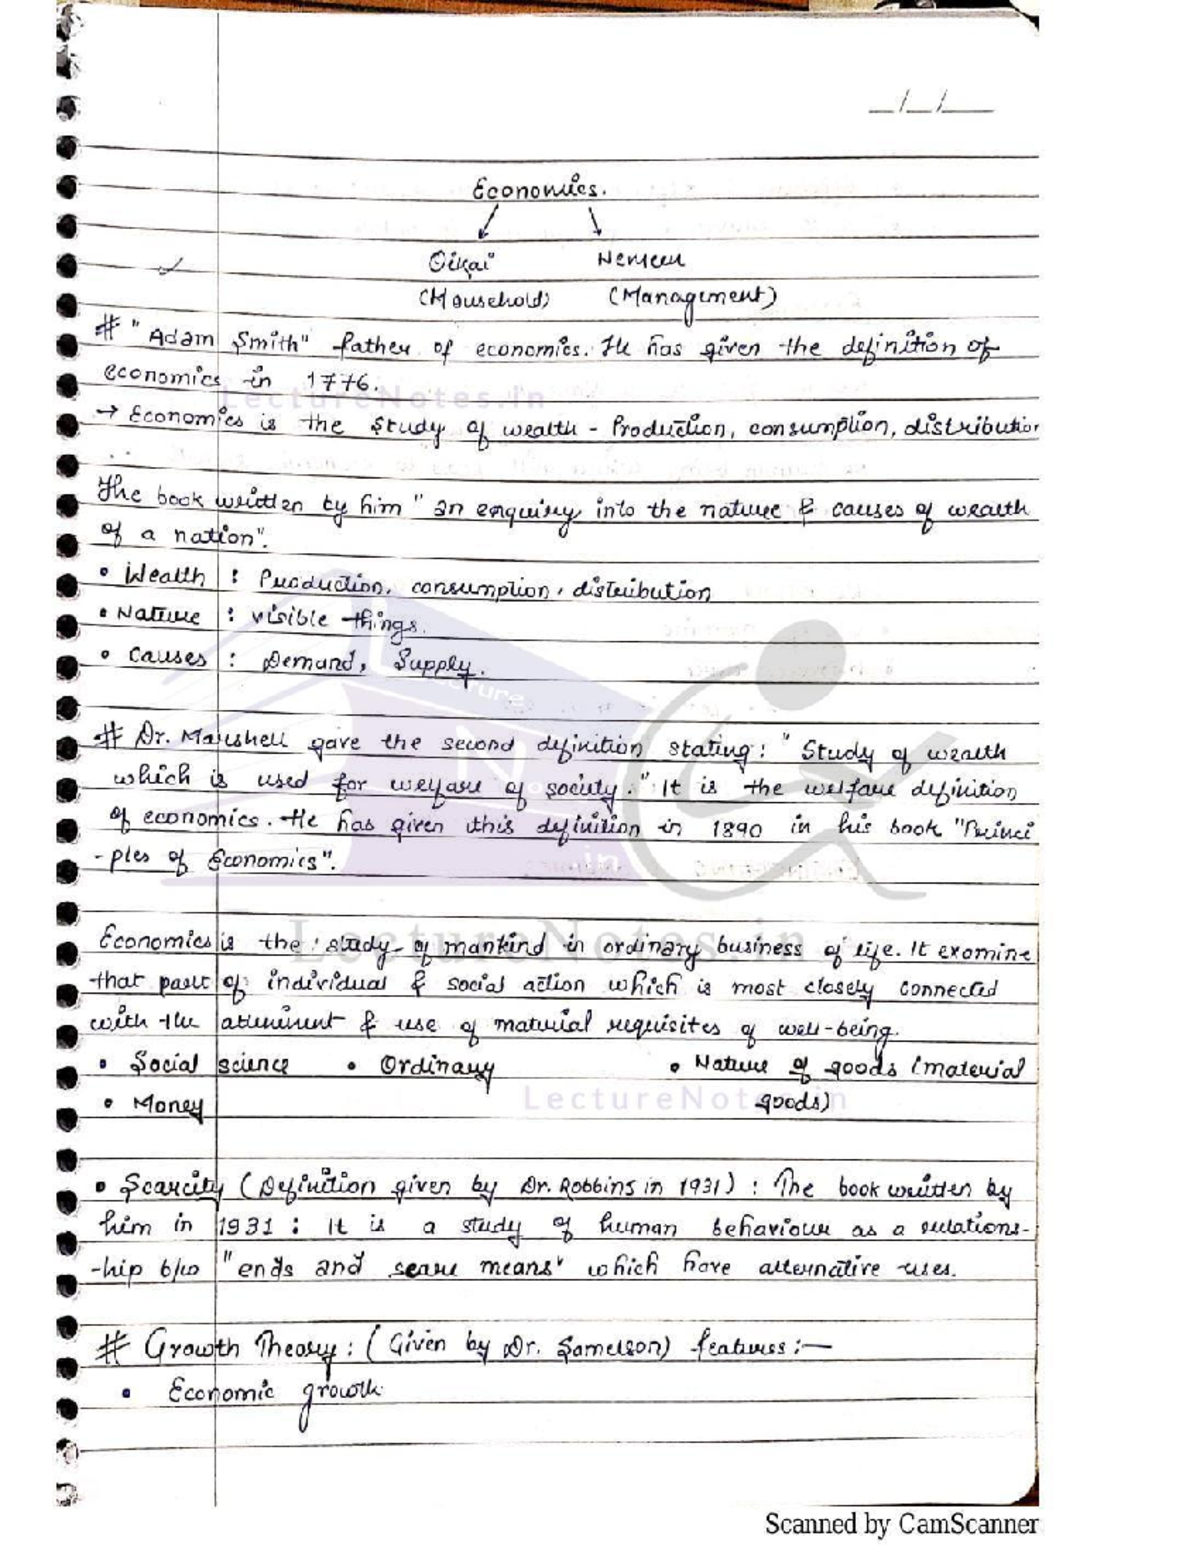 __/__/____
Economics.
Oikai Nemein
(Household) (Management)
# "Adam Smith" father of economics. He has given the definition of
economics in 1776.
LectureNotes.in
→ Economics is the study of wealth - Production, consumption, distribution
The book written by him "an enquiry into the nature & causes of wealth
of a nation".
• Wealth : Production, consumption, distribution
• Nature : visible things.
• Causes : Demand, Supply.
# Dr. Marshell gave the second definition stating : "Study of wealth
which is used for welfare of society." It is the welfare definition
of economics. He has given this definition in 1890 in his book "Princi
-ples of Economics".
LectureNotes.in
Economics is the study of mankind in ordinary business of life. It examine
that part of individual & social action which is most closely connected
with the attuinment & use of material requisites of well-being.
• Social science • Ordinary • Nature of goods (material
• Money goods)
LectureNotes.in
• Scarcity (Definition given by Dr. Robbins in 1931) : The book written by
him in 1931 : It is a study of human behaviour as a relations-
-hip b/w "ends and scare means" which have alternative uses.
# Growth Theory : (Given by Dr. Samelson) features :—
• Economic growth
Scanned by CamScanner